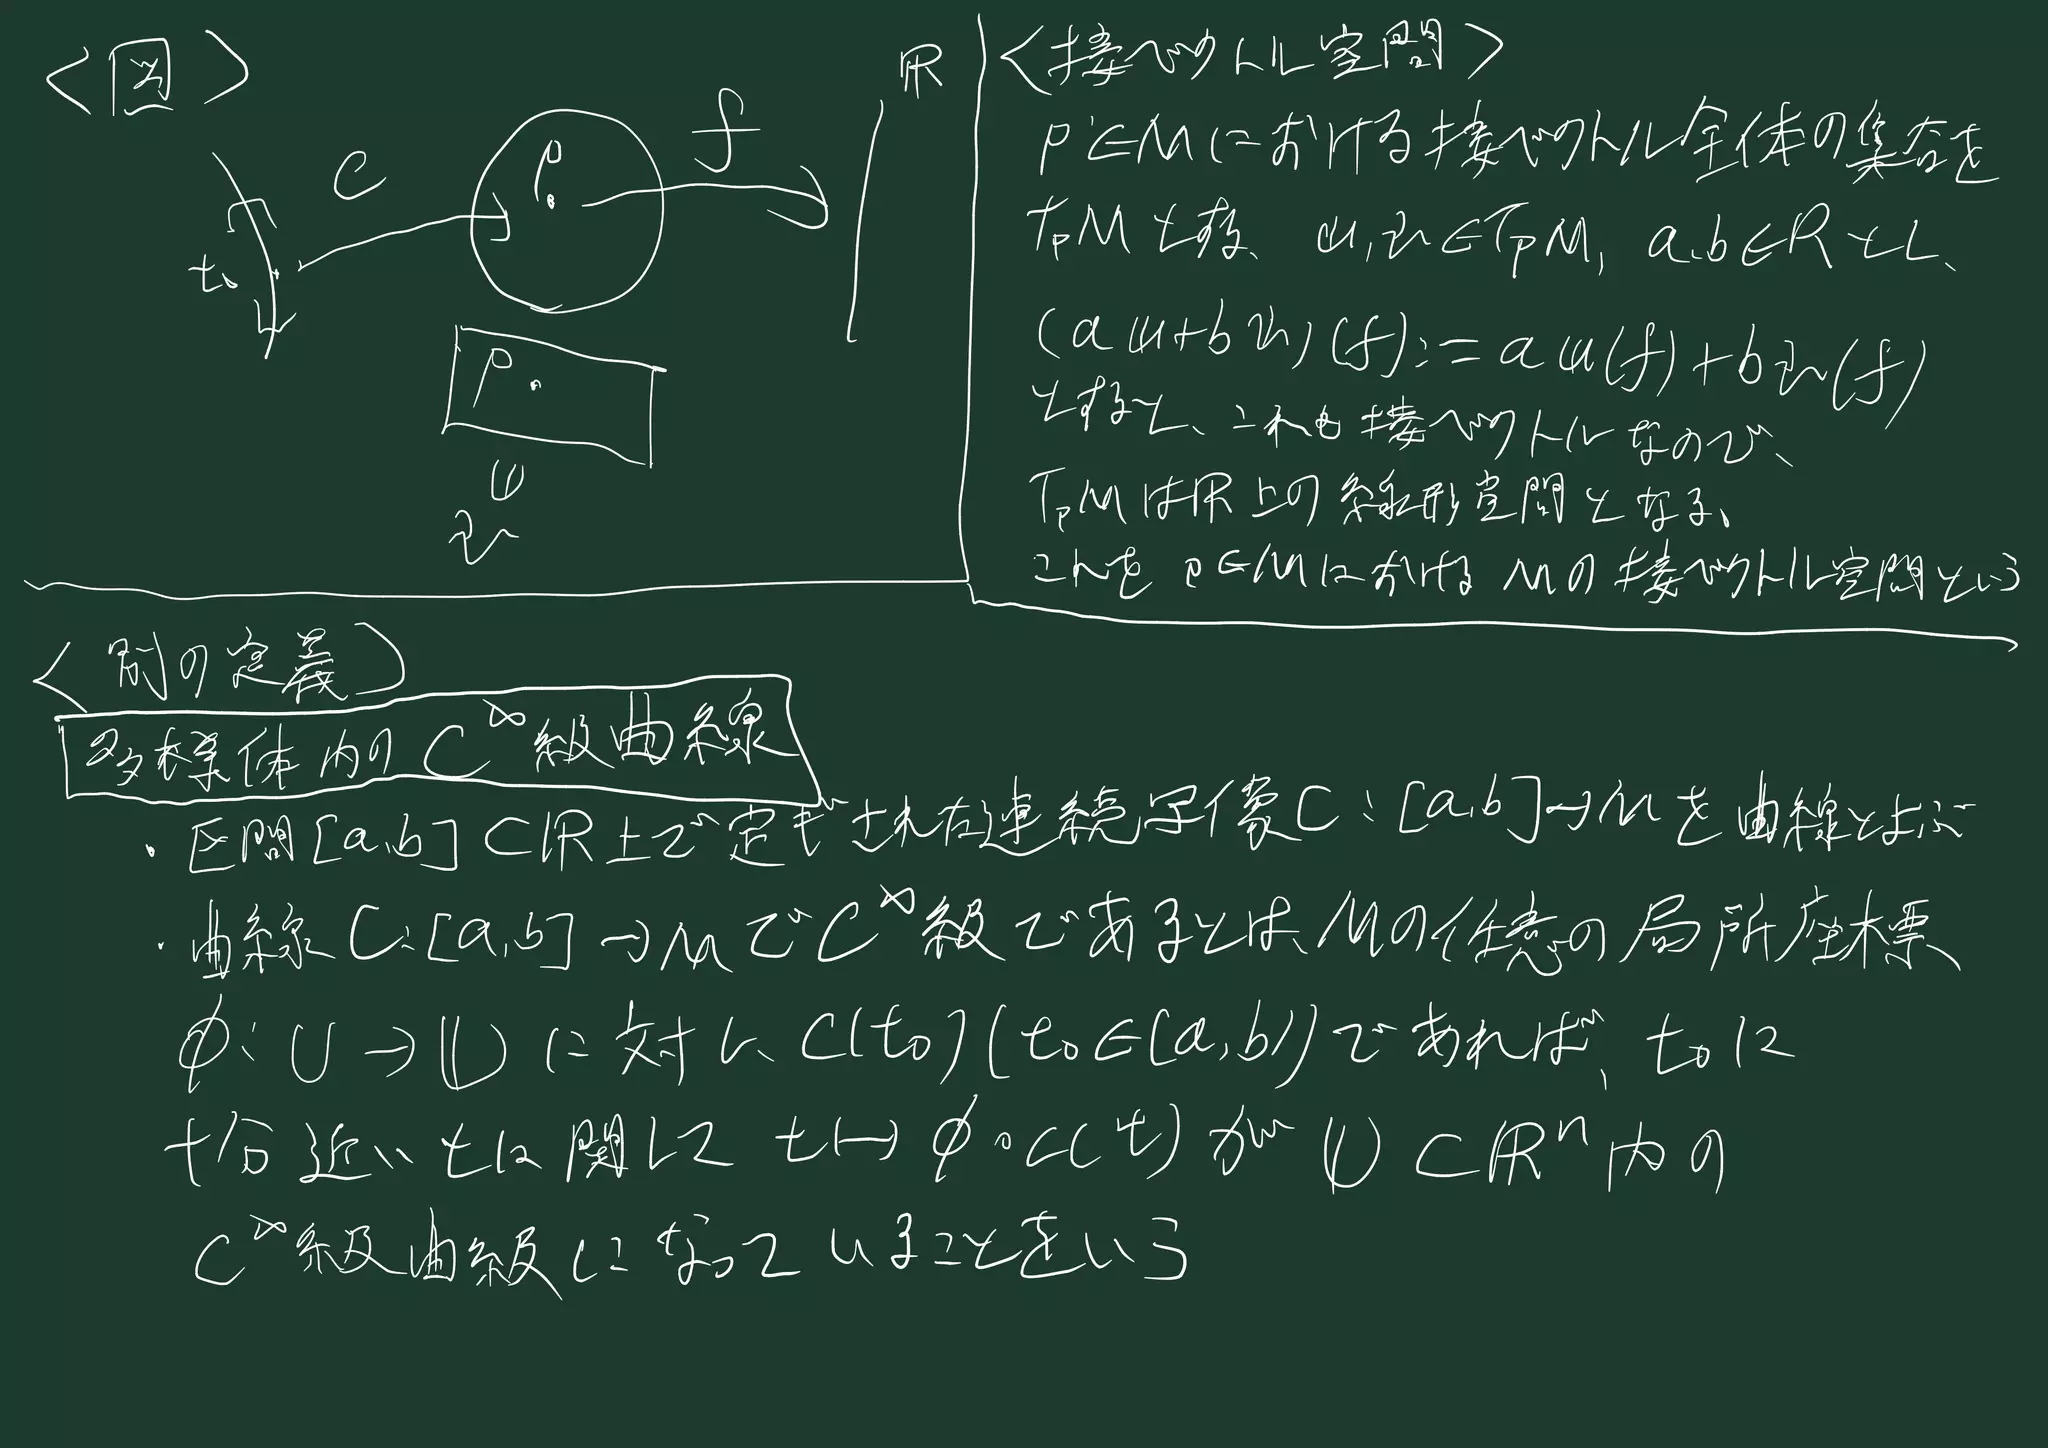 <図>
C
p
f
ℝ
t₀
p
ψ
v
<接ベクトル空間>
p∈Mにおける接ベクトル全体の集合を
TpMとする、u,v∈TpM, a,b∈Rとし、
(au+bv)(f):=au(f)+bv(f)
とすると、これも接ベクトルなので、
TpMはℝ上の線形空間となる、
これをp∈MにおけるMの接ベクトル空間という
<別の定義>
多様体内のC^∞級曲線
・区間[a,b]⊂ℝ上で定ギされた連続写像C:[a,b]→Mを曲線とよぶ
・曲線C:[a,b]→MでC^∞級であるとは、Mの任意の局所座標
φ:U→U'に対し、C(t₀)(t₀∈(a,b))であれば、t₀に
十分近いtに関してt↦φ∘c(t)がU'⊂ℝⁿ内の
C^∞級曲級になっていることをいう